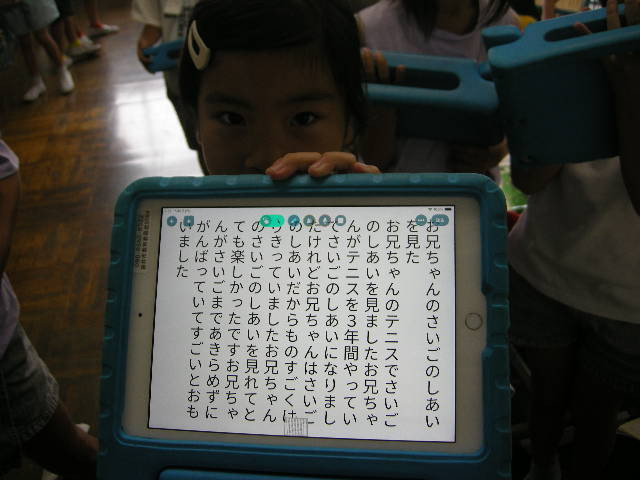 お兄ちゃんのさいごのしあい
を見た
お兄ちゃんのテニスでさいご
のしあいを見ましたお兄ちゃ
んがテニスを3年間やってい
てさいごのしあいになりまし
たけれどお兄ちゃんはさいご
のしあいだからものすごくは
りきっていましたお兄ちゃん
のさいごのしあいを見れてと
ても楽しかったですお兄ちゃ
んがさいごまであきらめずに
がんばっていてすごいとおも
いました